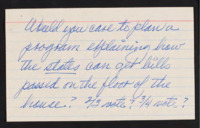 Would you care to plan a
program explaining how
the states can get bills
passed on the floor of the
house? 2/3 vote? 3/4 vote?